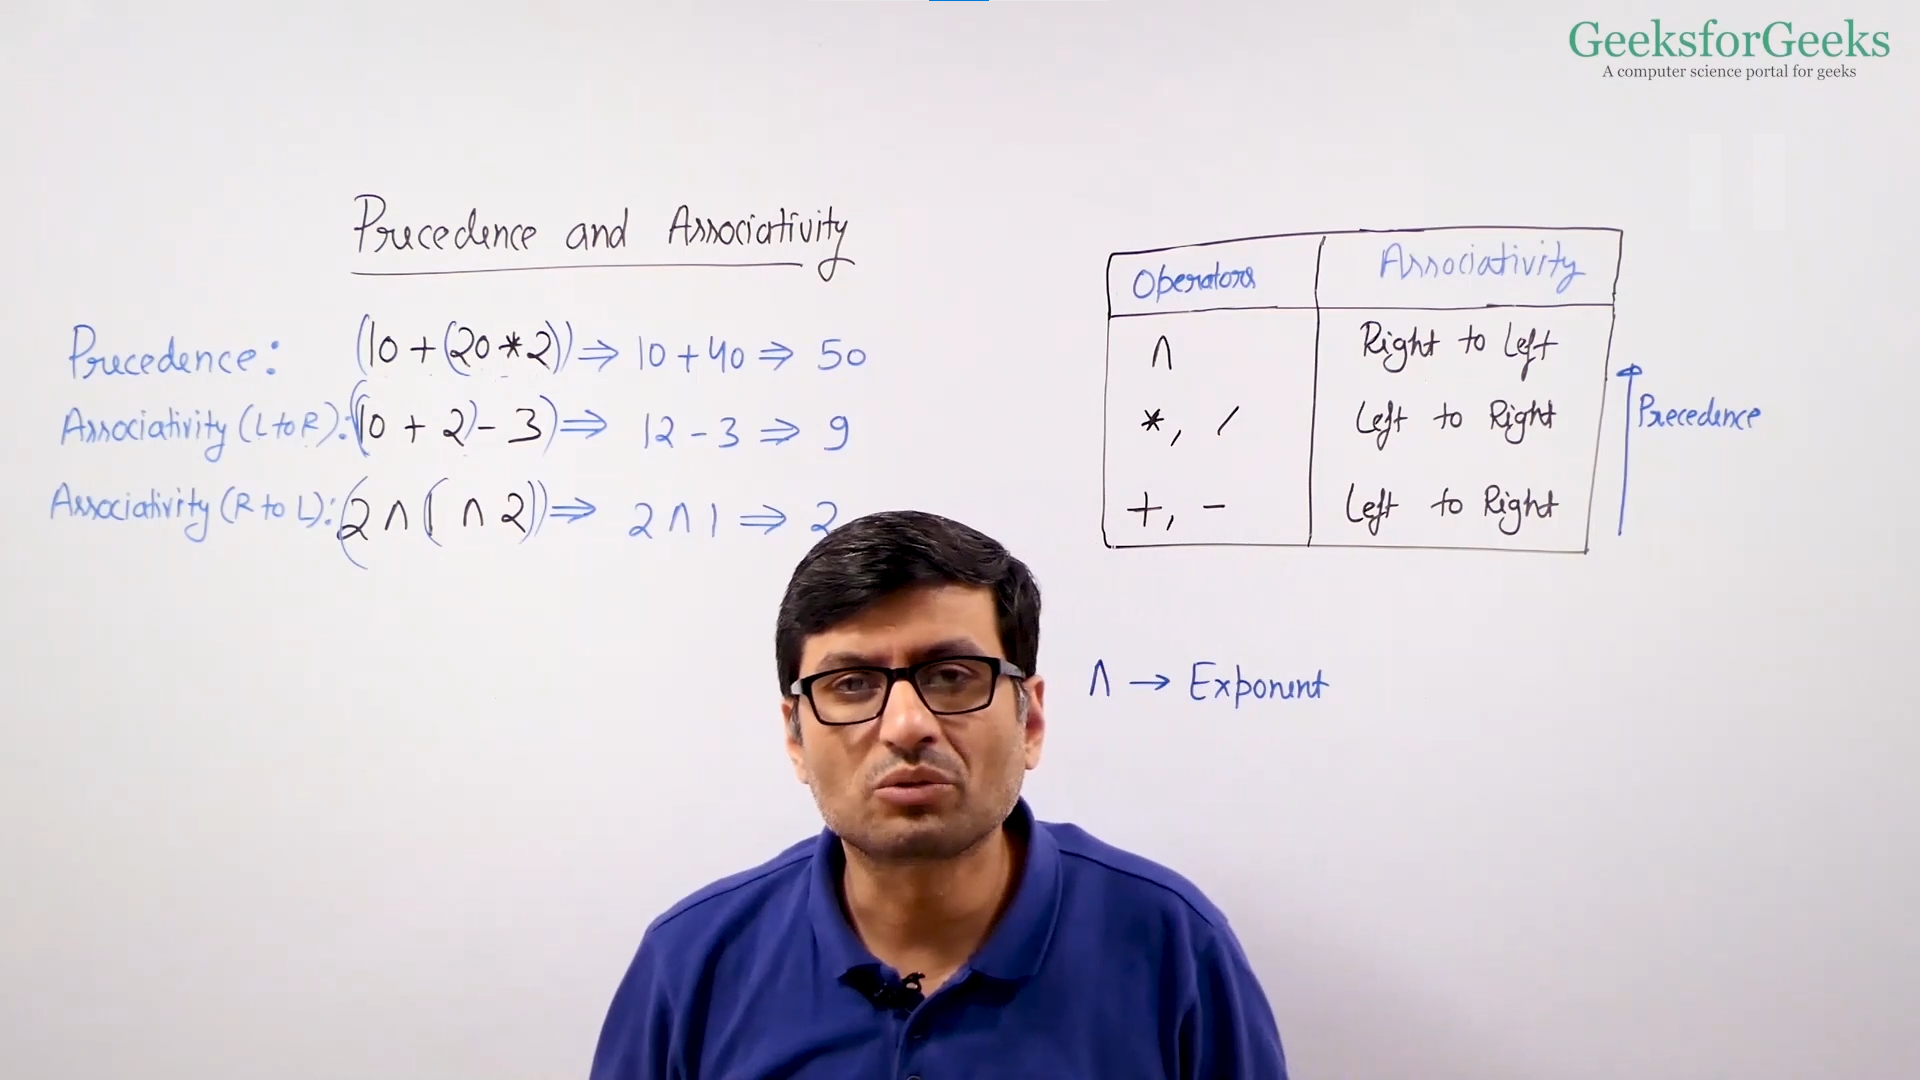 GeeksforGeeks
A computer science portal for geeks
Precedence and Associativity
Precedence: (10 + (20 * 2)) ⇒ 10 + 40 ⇒ 50
Associativity (L to R): ((10 + 2) - 3) ⇒ 12 - 3 ⇒ 9
Associativity (R to L): (2 ^ (1 ^ 2)) ⇒ 2 ^ 1 ⇒ 2
Operators Associativity
^ Right to Left
*, / Left to Right
+, - Left to Right
Precedence
^ → Exponent